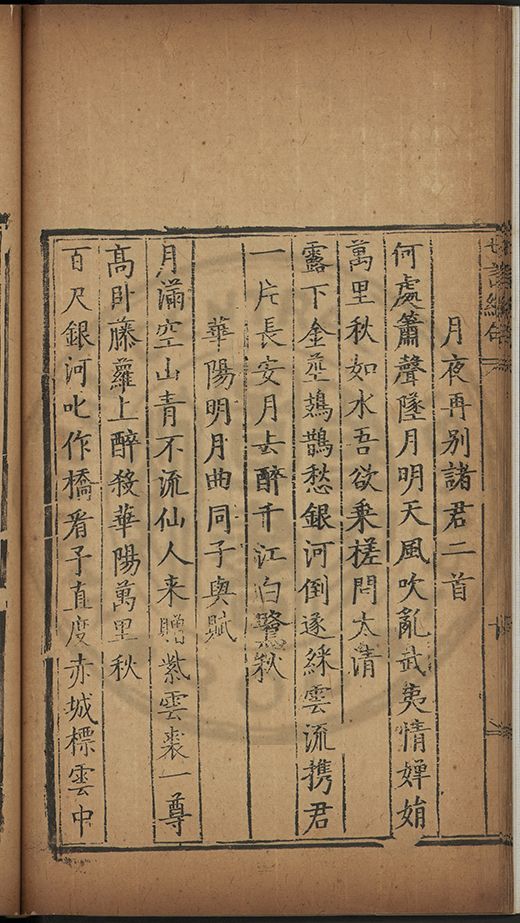 月夜再别諸君二首
何處簫聲墜月明天風吹亂武夷情嬋娟
萬里秋如水吾欲乗槎問太清
露下金莖鵁鵲愁銀河倒遂綵雲流携君
一片長安月去醉千江白鷺秋
華陽明月曲同子與賦
月滿空山青不流仙人来贈紫雲裘一尊
高卧藤蘿上醉殺華陽萬里秋
百尺銀河叱作橋看子直度赤城標雲中